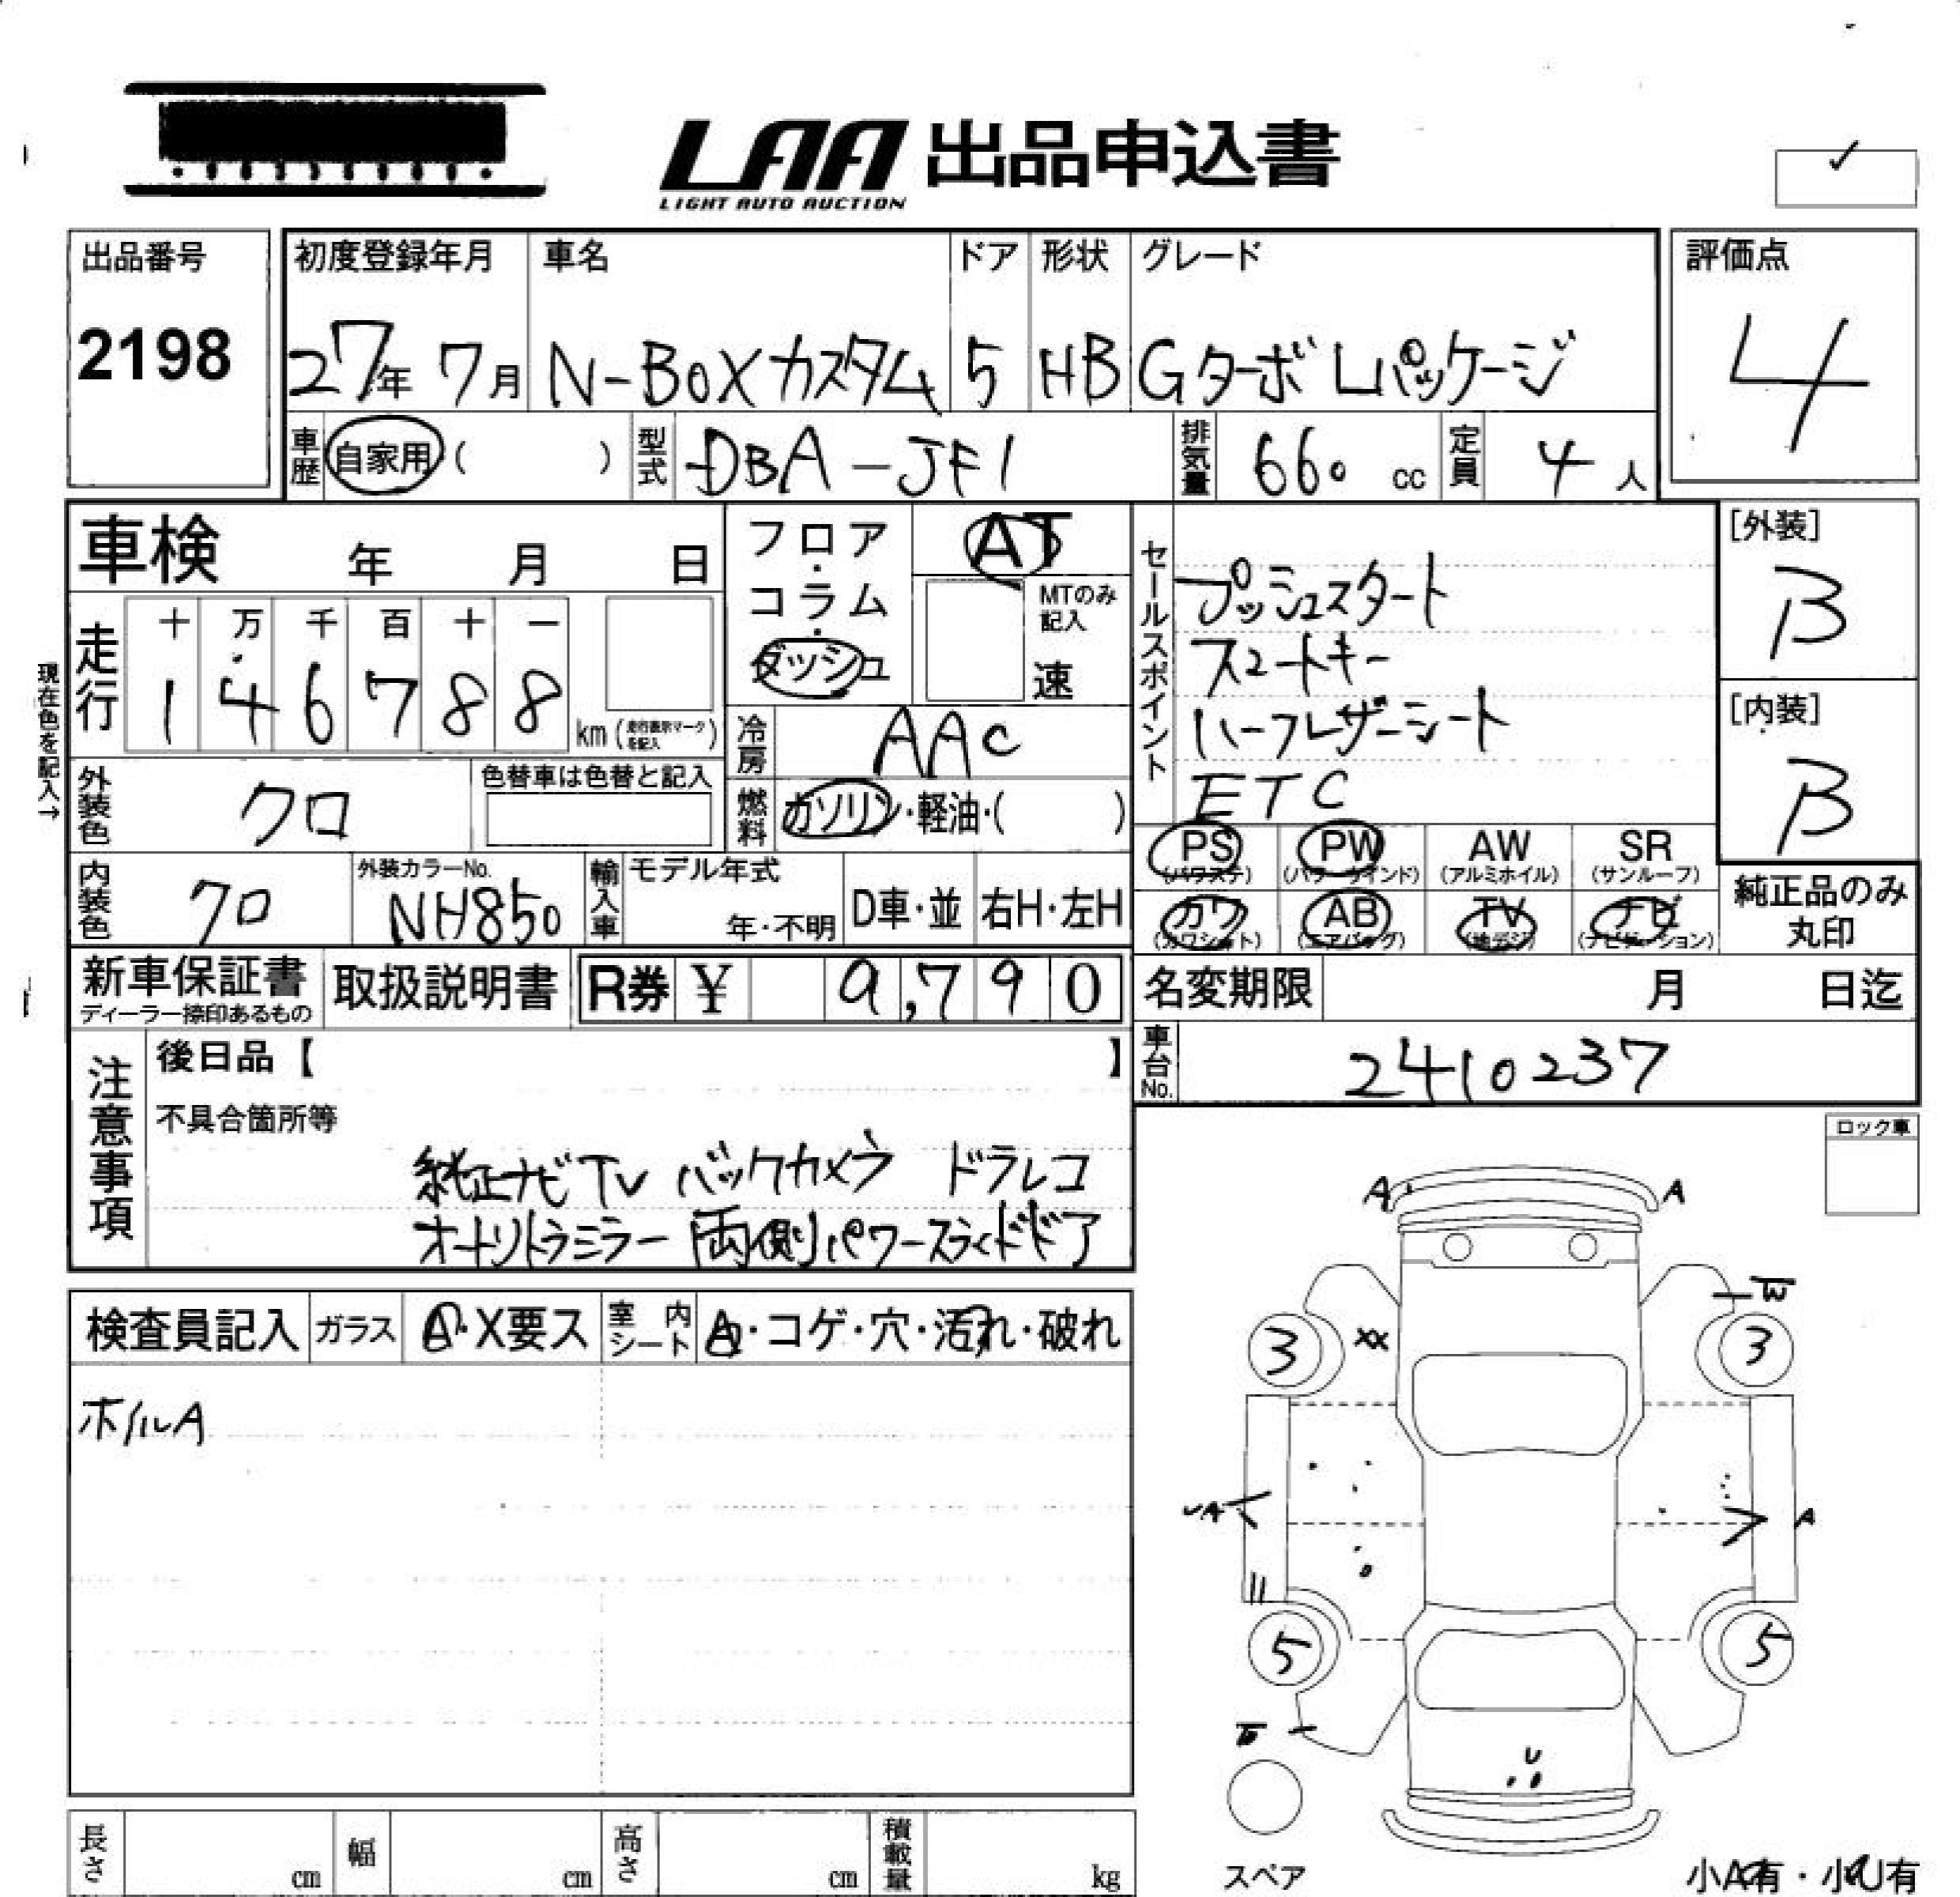 LAA 出品申込書
LIGHT AUTO AUCTION
出品番号 初度登録年月 車名 ドア 形状 グレード 評価点
2198 27年 7月 N-BOXカスタム 5 HB Gターボ Lパッケージ 4
車歴 自家用 ( ) 型式 DBA-JF1 排気量 660 cc 定員 4 人
車検 年 月 日
フロア・コラム・ダッシュ AT
MTのみ記入
速
セールスポイント
プッシュスタート
スマートキー
ハーフレザーシート
ETC
[外装]
B
[内装]
B
現在色を記入→
走行 十 万 千 百 十 一
1 4 6 7 8 8 km (走行表示マークを記入)
冷房 AAC
外装色 クロ 色替車は色替と記入
燃料 ガソリン・軽油・( )
PS (パワステ) PW (パワーウインド) AW (アルミホイル) SR (サンルーフ)
カワ (カワシート) AB (エアバッグ) TV (地デジ) ナビ (ナビゲーション)
純正品のみ丸印
内装色 クロ 外装カラーNo. NH850 輸入車 モデル年式 年・不明 D車・並 右H・左H
新車保証書 取扱説明書 R券 ¥ 9,790
ディーラー捺印あるもの
名変期限 月 日迄
車台No. 2410237
注意事項
後日品【 】
不具合箇所等
純正ナビTV バックカメラ ドラレコ
オートリトラミラー 両側パワースライドドア
ロック車
検査員記入 ガラス A・X要ス 室内シート A・コゲ・穴・汚れ・破れ
ホイルA
A A
3 XX 3
A A
5 5
U
スペア
長さ cm 幅 cm 高さ cm 積載量 kg
小A有・小U有